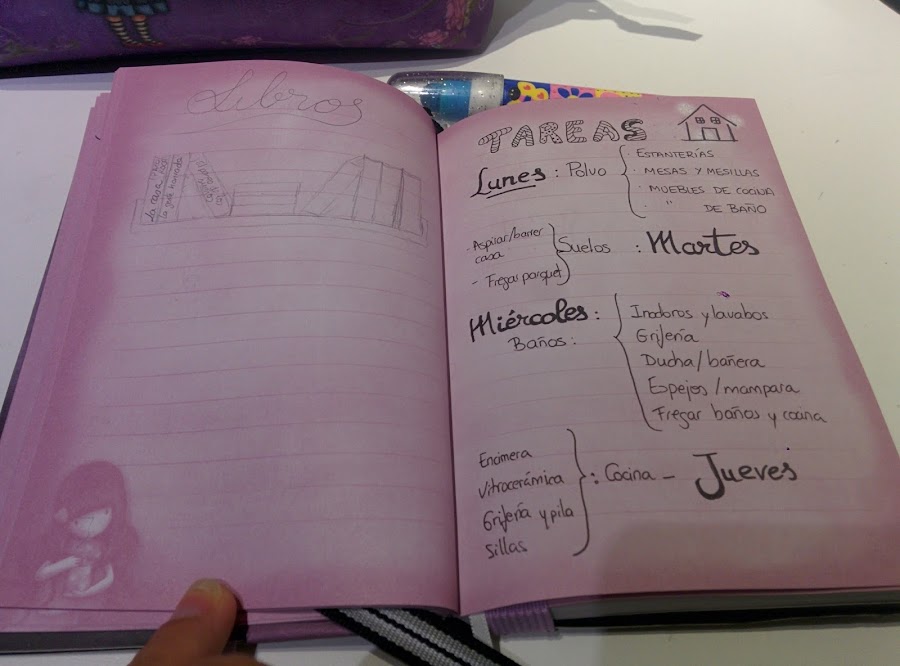 Libros
La casa
TAREAS
Lunes : Polvo
· ESTANTERÍAS
· MESAS Y MESILLAS
· MUEBLES DE COCINA
· " DE BAÑO
- Aspirar/barrer
casa
- Fregar parquet
Suelos : Martes
Miércoles :
Baños :
Inodoros y lavabos
Grifería
Ducha / bañera
Espejos / mampara
Fregar baños y cocina
Encimera
Vitrocerámica
Grifería y pila
Sillas
: Cocina - Jueves